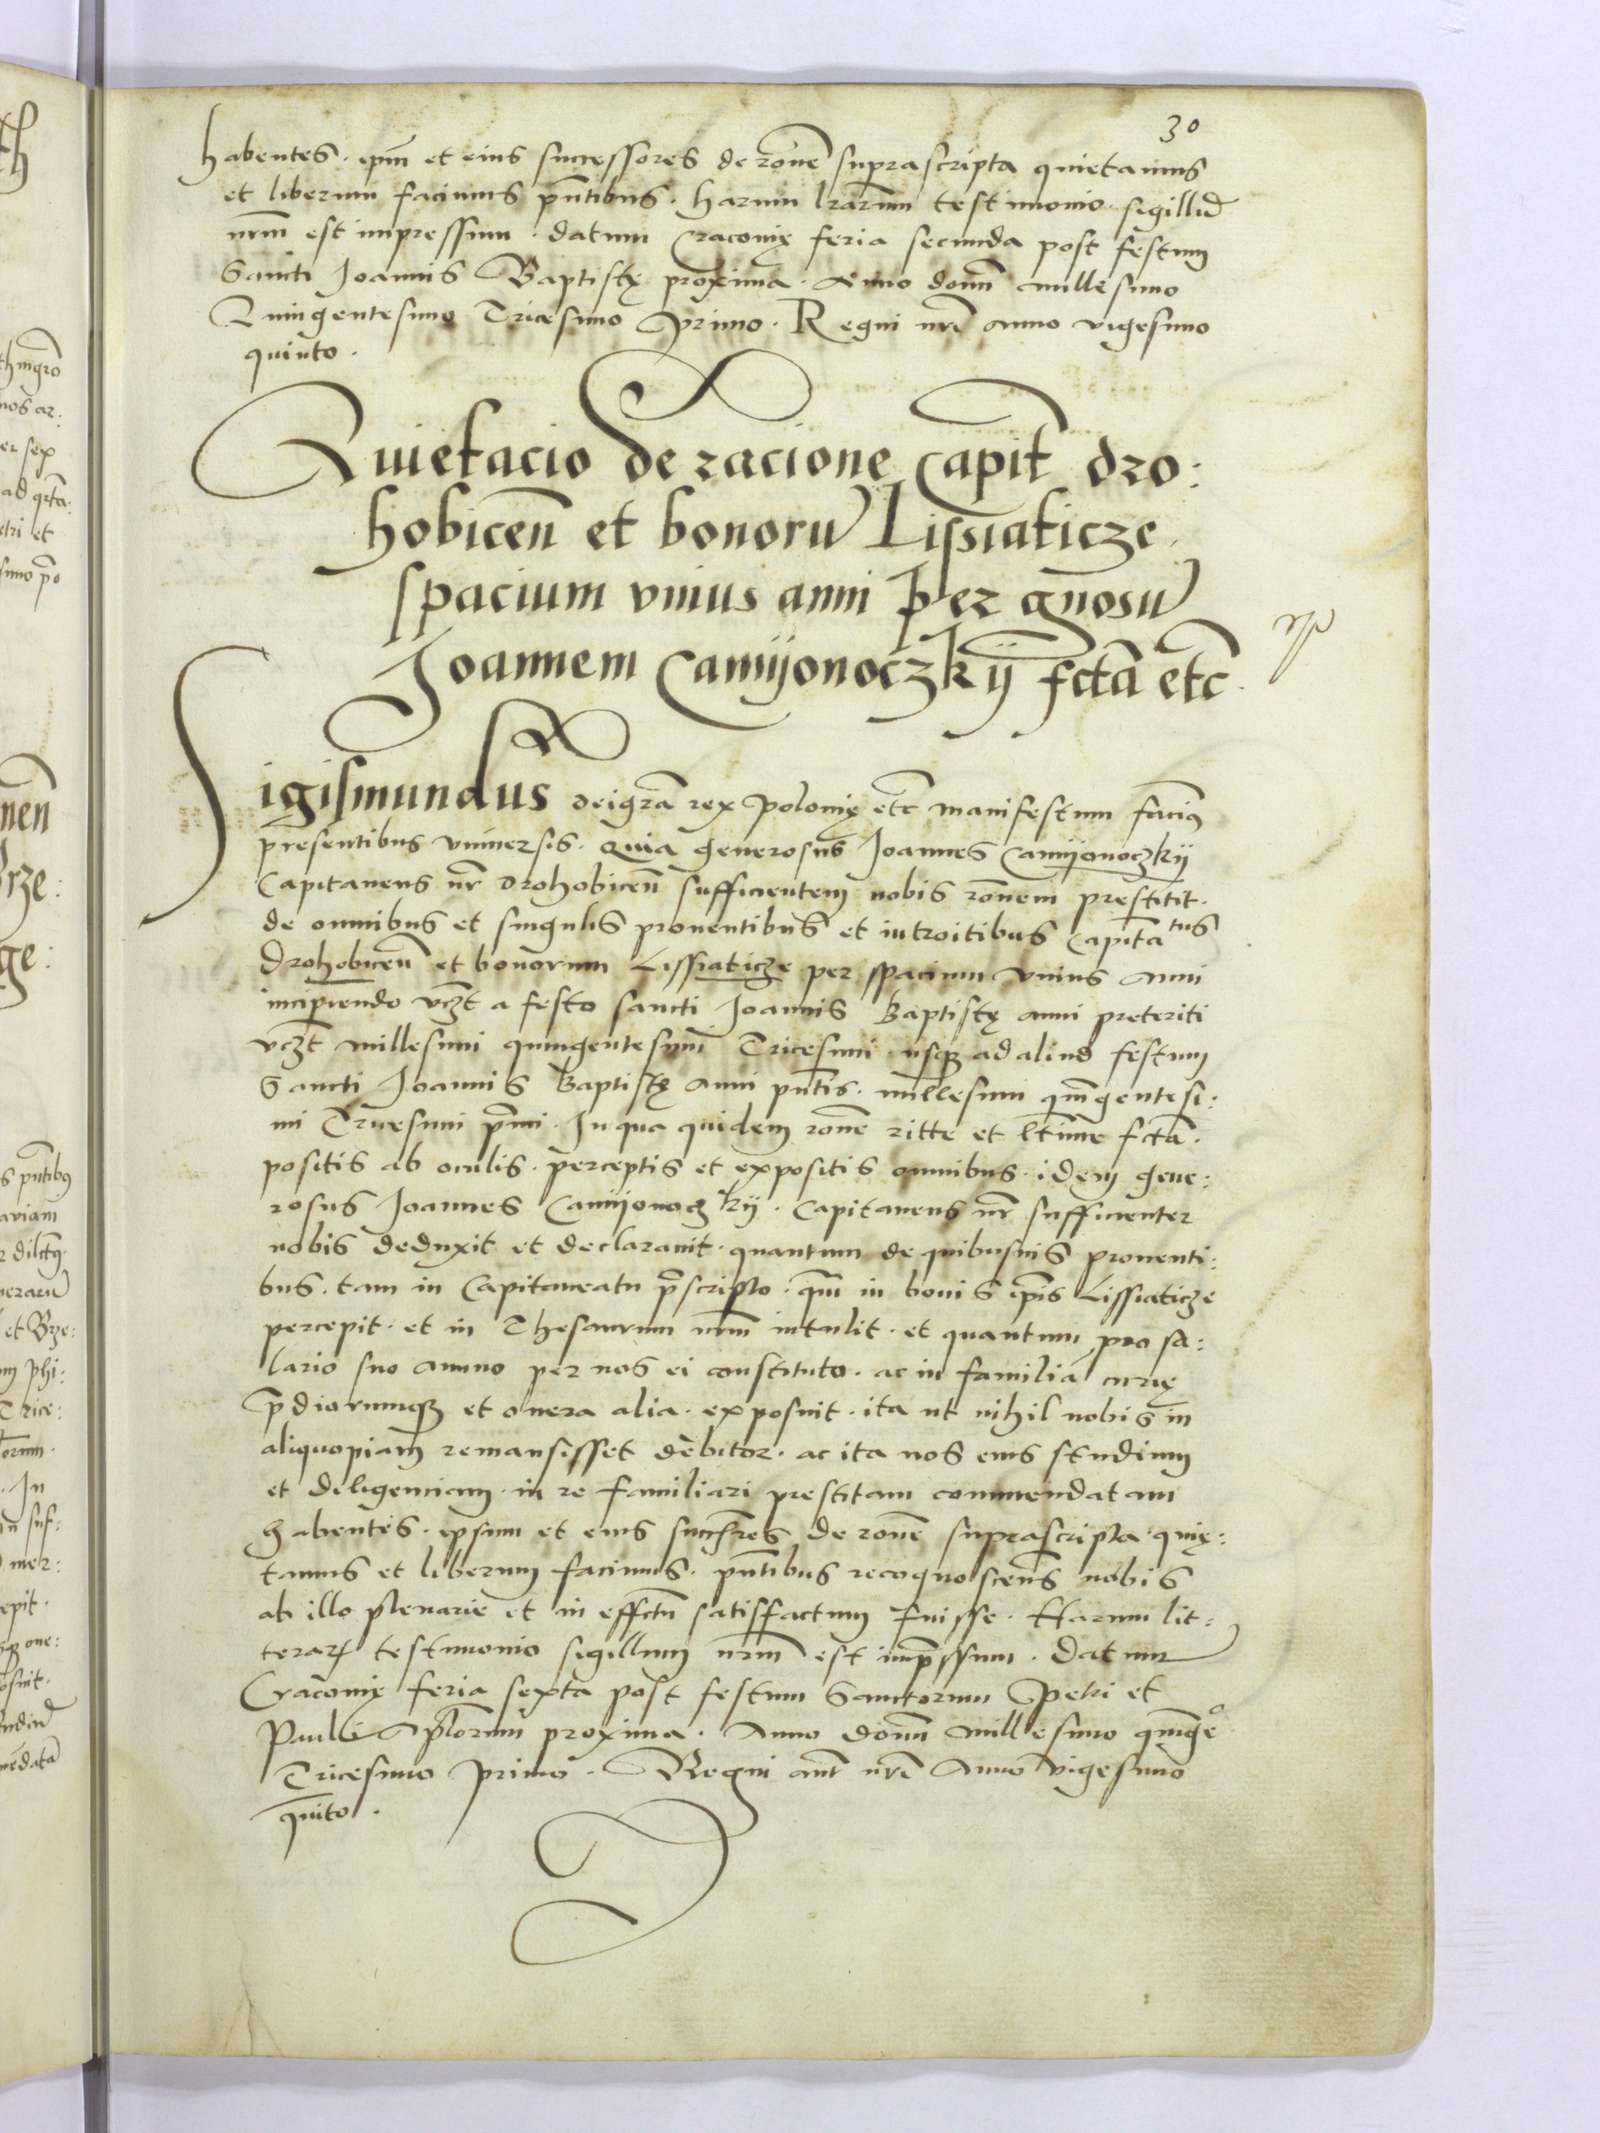 30
habentes. ipm̄ et eius successores de rōne suprascripta quietamus
et liberum facimus pn̄tibus. harum lrārum testimonio sigillū
nrm̄ est impressum. datum Cracovię feria secunda post festum
Sancti Joannis Baptistę proxima. Anno domī millesimo
Quingentesimo Tricesimo Primo. Regni nrī anno vigesimo
quinto.
Quietacio de racione Capit̄ dro:
hobiceñ et bonorū Lissiaticze
spacium vnius anni per gnosū
Joannem Camyonoczkÿ fctā etc̄.
Sigismundus dei grā rex Polonię etc̄ manifestum facim9
presentibus vniversis. Quia generosus Joannes Camyonoczkÿ
Capitaneus nr̄ drohobiceñ sufficientem nobis rōnem prestitit.
de omnibus et singulis proventibus et introitibus Capitātus
Drohobiceñ et bonorum Lissiaticze per spacium vnius anni
incipiendo vczt̄ a festo sancti Joannis Baptistę anni preteriti
vczt̄ millesimi quingentesimi Tricesimi usq3 ad aliud festum
Sancti Joannis Baptistę anni pn̄tis. millesimi qm̄gentesi:
mi Tricesimi prmi. In qua quidem rōne ritte et ltime fctā.
positis ab oculis. perceptis et expositis omnibus. idem gene:
rosus Joannes Camyonoczkÿ. Capitaneus nr̄ sufficienter
nobis deduxit et declaravit. quantum de quibusuis proventi:
bus. tam in Capitaneatu prescripto. qm̄ in bonis ip̄is Lissiaticze
percepit. et in Thesaurum nrm̄ intulit. et quantum pro sa:
lario suo annuo per nos ei constituto. ac in familiā curię
p̄diorumq3 et onera alia. exposuit. ita ut nihil nobis in
aliquopiam remansisset debitor. ac ita nos eius studium
et diligenciam in re familiari prestitam commendatam
habentes. ipsum et eius succ̄res de rōne suprascripta. quię:
tamus et liberum facimus. pn̄tibus recognoscens nobis
ab illo plenarie et in effctū satisfactum fuisse. Harum lit:
terar̄ testimonio sigillum nrm̄ est imp̄ssum. Datum
Cracovię feria sexta post festum Sanctorum Petri et
Pauli Aplorum proxima. Anno domī millesimo qm̄geº
Tricesimo primo. Regni aūt nrī Anno vigesimo
quīto.